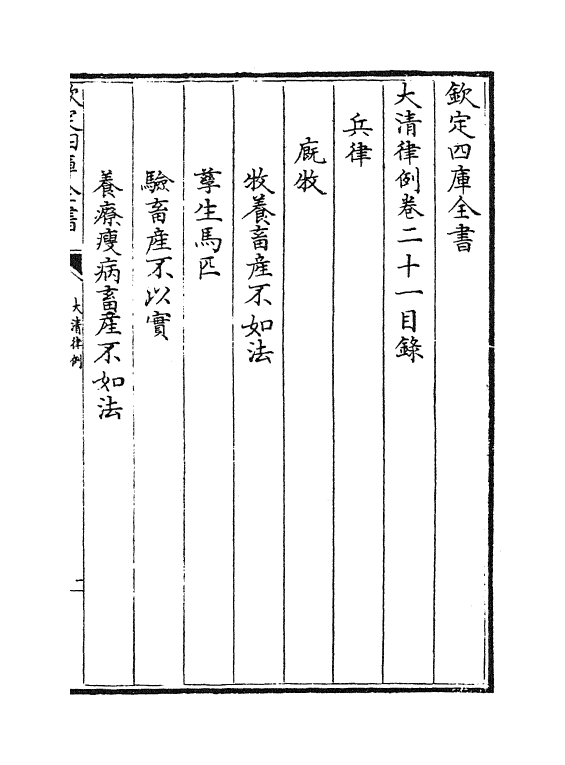 欽定四庫全書
大清律例卷二十一目錄
兵律
廐牧
牧養畜產不如法
孳生馬匹
驗畜產不以實
養療瘦病畜產不如法
欽定四庫全書
大清律例
二